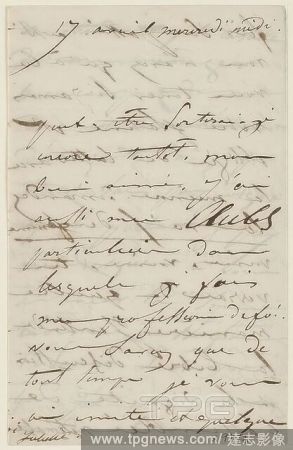 17 avril mercredi midi.
peut-être sortirai-je
encore tantôt, mon
bien aimé. J'ai
aussi mes Clubs
particuliers dans
lesquels je fais
ma profession de foi.
Vous savez que de
tout temps je vous
ai imité et quelque
Juliette
TPG
www.tpgnews.com/達志影像